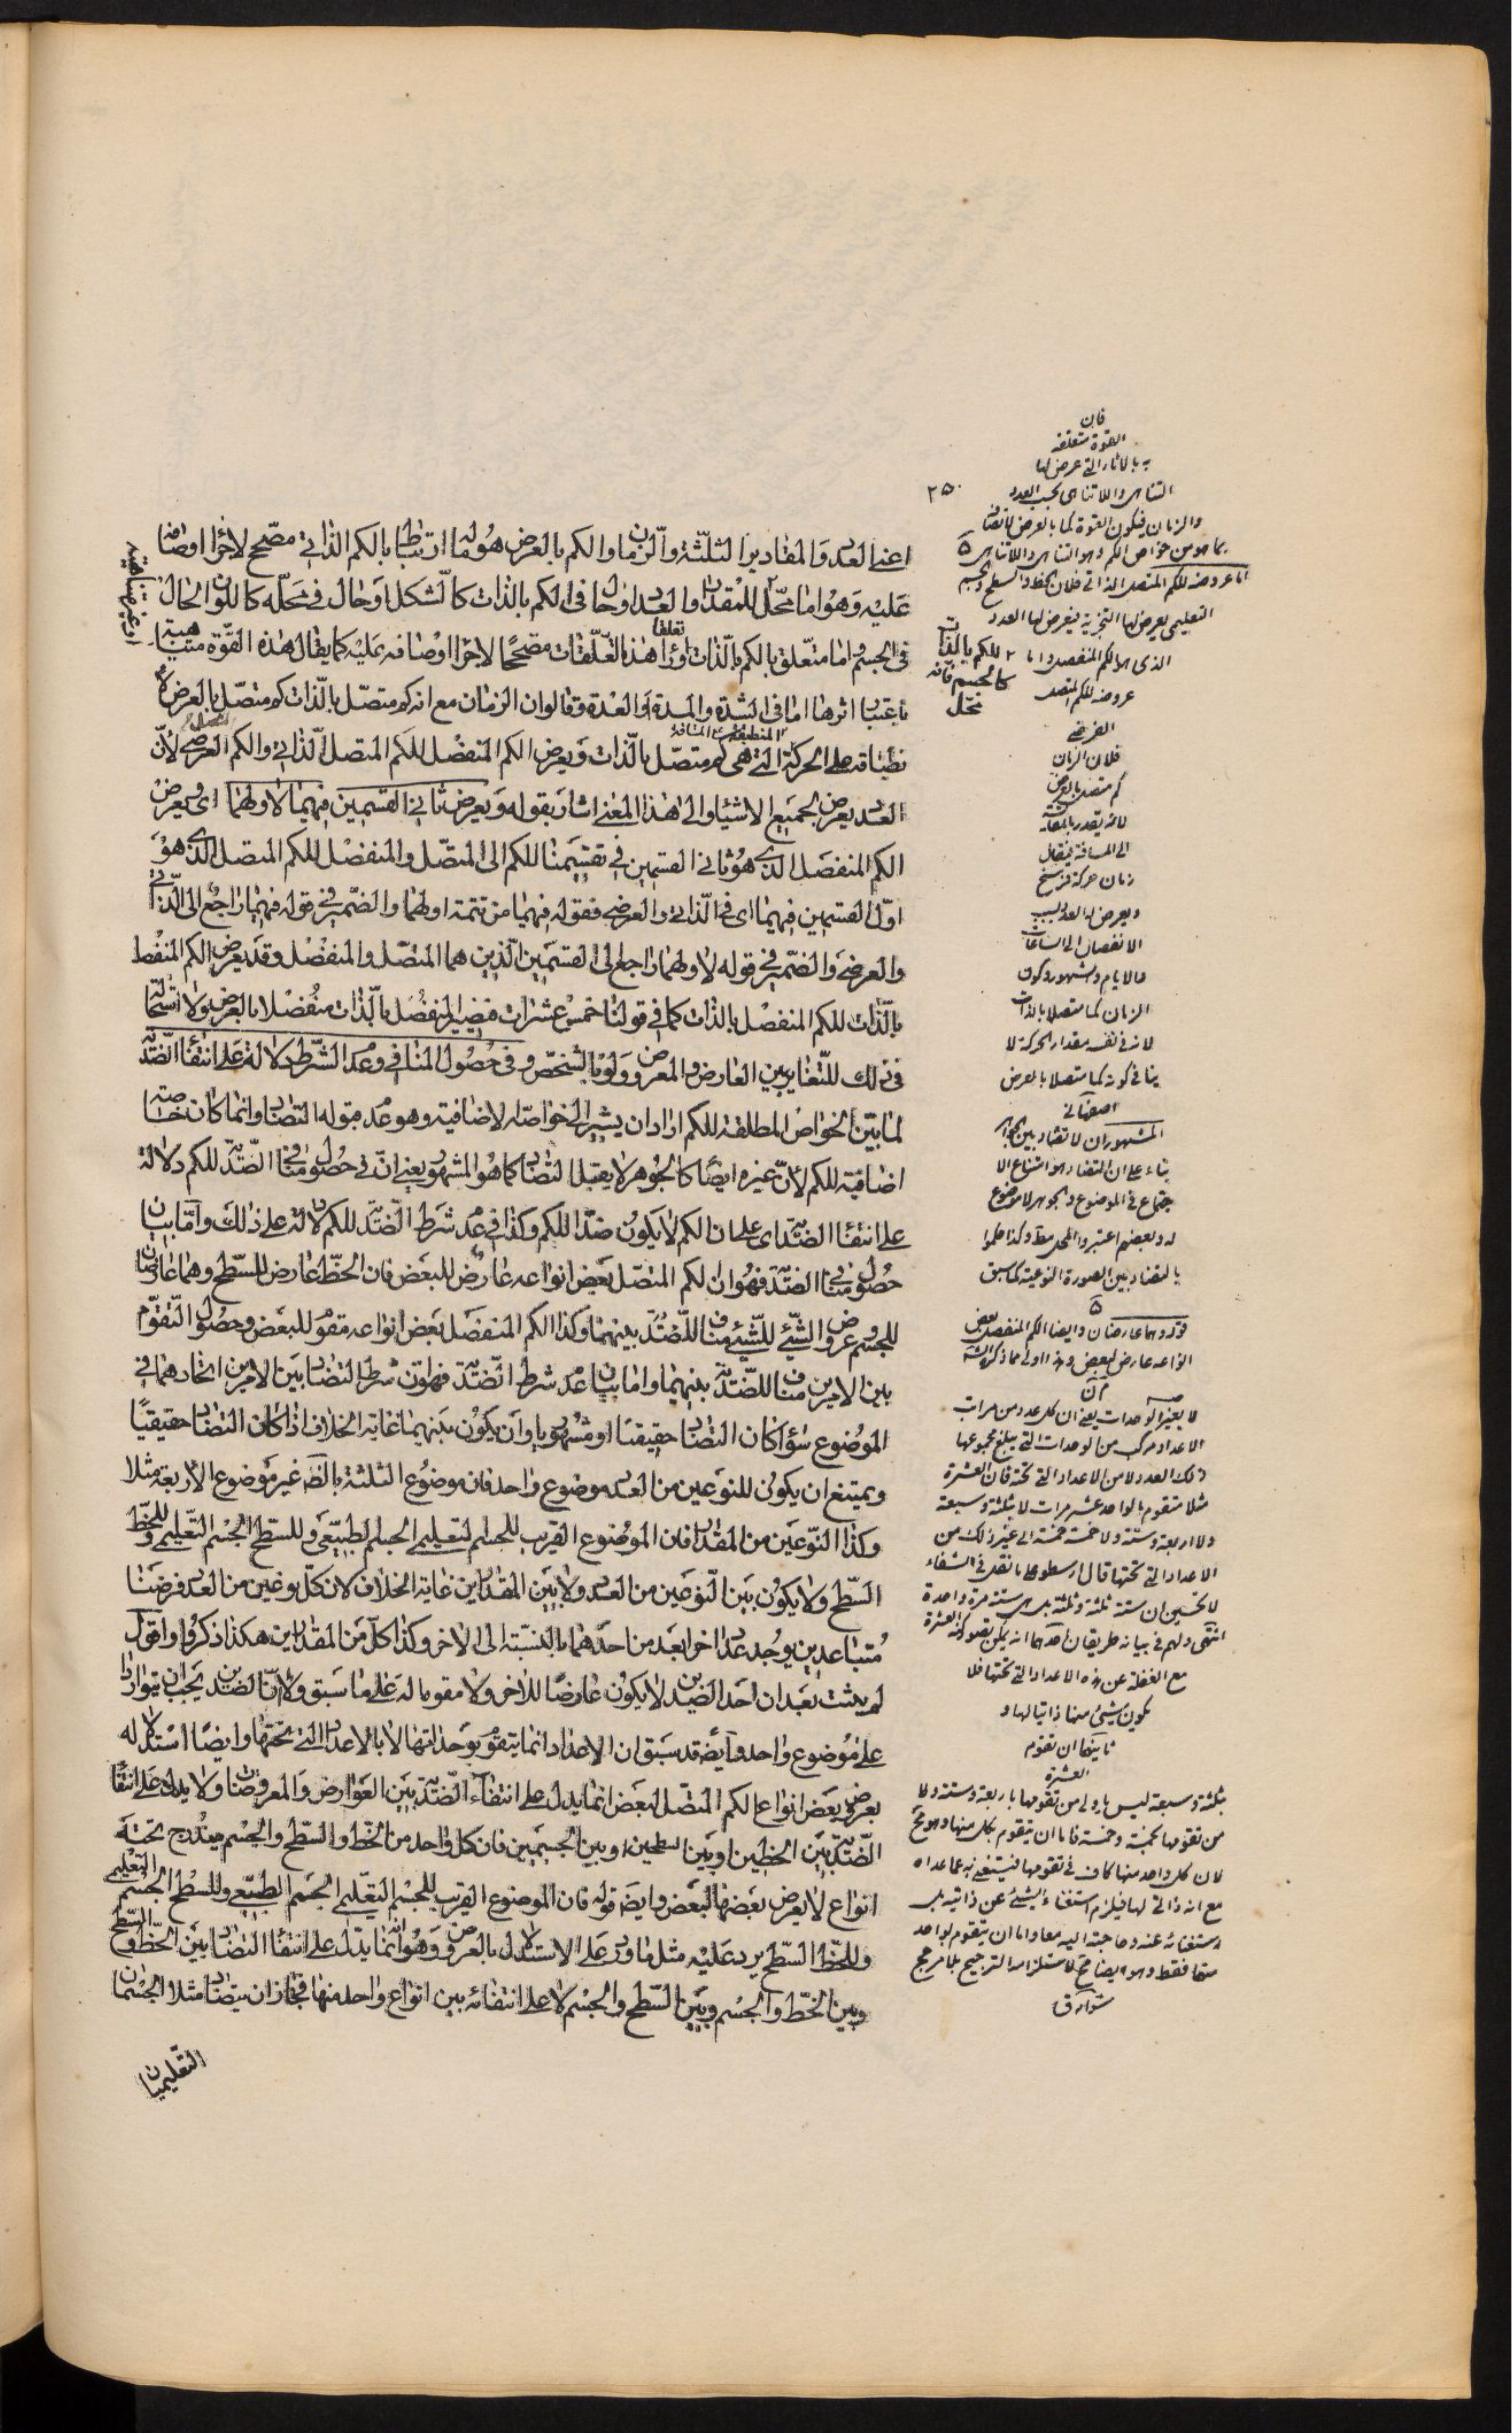 اعنى العدد والمقادير الثلثة والزمان والكم بالعرض هو ماله ارتباط بالكم الذاتى مصحح لاجراء اوصافه
عليه وهو اما محل للمقدار والعدد او حال فى الكم بالذات كالشكل او حال فى محله كاللون الحال
فى الجسم واما متعلق بالكم بالذات وراء هذه التعلقات تعلقا مصححا لاجراء اوصافه عليه كما يقال هذه القوة متناهية
او غير متناهية
باعتبار اثرها اما فى الشدة والمدة او العدة وقالوا ان الزمان مع انه كم متصل بالذات كم متصل بالعرض لا
نطباقه على الحركة المنطبقة على المسافة التى هى كم متصل بالذات ويعرض الكم المنفصل للكم المتصل الذاتى والكم المتصل العرضى لأن
العدد يعرض لجميع الاشياء والى هذا المعنى اشار بقوله ويعرض ثانى القسمين فيهما لاولهما اى ويعرض
الكم المنفصل الذى هو ثانى القسمين فى تقسيمنا للكم الى المتصل والمنفصل للكم المتصل الذى هو
اول القسمين فيهما اى فى الذاتى والعرضى فقوله فيهما من تتمة اولهما والضمير فى قوله فيهما راجع الى الذاتى
والعرضى والضمير فى قوله لاولهما راجع الى القسمين الذين هما المتصل والمنفصل وقد يعرض الكم المنفصل
بالذات للكم المنفصل بالذات كما فى قولنا خمس عشرات فيصير المنفصل بالذات منفصلا بالعرض ولا استحالة
فى ذلك للتغاير بين العارض والمعروض ولو بالشخص وفى حصول المنافى وعدم الشرط دلالة على انتفاء الضدية
لما بين الخواص المطلقة للكم اراد ان يشير الى خواصه الاضافية وهو عدم قبوله التضاد وانما كان خاصة
اضافية للكم لأن غيره ايضا كالجوهر لا يقبل التضاد كما هو المشهور يعنى ان فى حصول منافى الضدية للكم دلالة
على انتفاء الضدية اى على ان الكم لا يكون ضدا للكم وكذا فى عدم شرط الضدية للكم دلالة على ذلك واما بيان
حصول منافى الضدية فهو ان الكم المتصل بعض انواعه عارض للبعض فان الخط عارض للسطح وهما عارضان
للجسم وعروض الشئ للشئ مناف للضدية بينهما وكذا الكم المنفصل بعض انواعه مقوم للبعض وحصول التقوم
بين الامرين مناف للضدية بينهما واما بيان عدم شرط الضدية فهو ان شرط التضاد بين الامرين اتحادهما فى
الموضوع سواء كان التضاد حقيقيا او مشهوريا وان يكون بينهما غاية الخلاف اذا كان التضاد حقيقيا
ويمتنع ان يكون للنوعين من العدد موضوع واحد فان موضوع الثلثة بالضرورة غير موضوع الاربعة مثلا
وكذا النوعين من المقدار فان الموضوع القريب للجسم التعليمى الجسم الطبيعى وللسطح الجسم التعليمى وللخط
السطح ولا يكون بين النوعين من العدد ولا بين المقدارين غاية الخلاف لان كل نوعين من العدد فرضتا
متباعدين يوجد عدد اخر ابعد من احدهما بالنسبة الى الاخر وكذا كل من المقدارين هكذا ذكروا واقول
لم يثبت بعد ان احد الضدين لا يكون عارضا للاخر ولا مقوما له على ما سبق ولأن الضدين يجب ان يتواردا
على موضوع واحد وايضا قد سبق ان الاعداد انما يتقوم بوحداتها لا بالاعداد التى تحتها وايضا استدلاله
بعروض بعض انواع الكم المتصل لبعض انما يدل على انتفاء الضدية بين العوارض والمعروضات ولا يدل على انتفاء
الضدية بين الخطين او بين السطحين او بين الجسمين فان كل واحد من الخط والسطح والجسم يندرج تحته
انواع لا يعرض بعضها لبعض وايضا قوله فان الموضوع القريب للجسم التعليمى الجسم الطبيعى وللسطح الجسم التعليمى
وللخط السطح يرد عليه مثل ما ورد على الاستدلال بالعروض وهو انه انما يدل على انتفاء التضاد بين الخط والسطح
وبين الخط والجسم وبين السطح والجسم لا على انتفائه بين انواع واحد منها فجاز ان يتضاد مثلا الجسمان
التعليميان
فان
القوة متعلقة
بالآثار التى عرض لها
التناهى واللاتناهى بحسب العدد
والزمان فيكون القوة كما بالعرض لاتصافه
بما هو من خواص الكم وهو التناهى واللاتناهى
٢٥٠
اما عروضه للكم المتصل الذاتى فلان الخط والسطح والجسم
التعليمى يعرض لها التجزية فيعرض لها العدد
الذى هو الكم المنفصل واما
عروضه للكم المتصل
العرضى
للكم بالذات
كالجسم فانه
محل
فلان الزمان
كم متصل بالعرض
لانه يقدر بالمسافة
الى المسافة فيقال
زمان حركة فرسخ
ويعرض له العدد بسبب
الانفصال الى الساعات
والايام والشهور وكون
الزمان كما متصلا بالذات
لانه فى نفسه مقدار الحركة لا
ينافى كونه كما متصلا بالعرض
اصفهانى
المشهور ان لا تضاد بين الجواهر
بناء على ان التضاد هو امتناع الا
جتماع فى الموضوع والجوهر لا موضوع
له وبعضهم اعتبر المحل مطلقا وكذا حكموا
بالتضاد بين الصورة النوعية كما سبق
قوله وهما عارضان وايضا الكم المنفصل بعض
انواعه عارض لبعض وهذا اولى مما ذكره الش
لا بغير الوحدات يعنى ان كل عدد من مراتب
الاعداد مركب من الوحدات التى يبلغ مجموعها
ذلك العدد لا من الاعداد التى تحته فان العشرة
مثلا متقوم بالواحد عشر مرات لا بثلثة وسبعة
ولا اربعة وستة ولا خمسة خمسة الى غير ذلك من
الاعداد التى تحتها قال ارسطو على ما نقل فى الشفاء
لا تحسبن ان ستة ثلثة وثلثة بل هى ستة مرة واحدة
انتهى ولهم فى بيانه طريقان احدهما انه يمكن تصور كنه العشرة
مع الغفلة عن هذه الاعداد التى تحتها فلا
يكون شئ منها ذاتيا لها و
ثانيهما ان تقوم
العشرة
بثلثة وسبعة ليس باولى من تقومها باربعة وستة ولا
من تقومها بخمسة وخمسة فاما ان يتقوم بكل منها وهو مح
لان كل واحد منها كاف فى تقومها فيستغنى به عما عداه
مع انه ذاتى لها فيلزم استغناء الشئ عن ذاتيه بل
استغنائه عنه وحاجته اليه معا واما ان يتقوم بواحد
منها فقط وهو ايضا مح لاستلزامه الترجيح بلا مرجح
شوارق